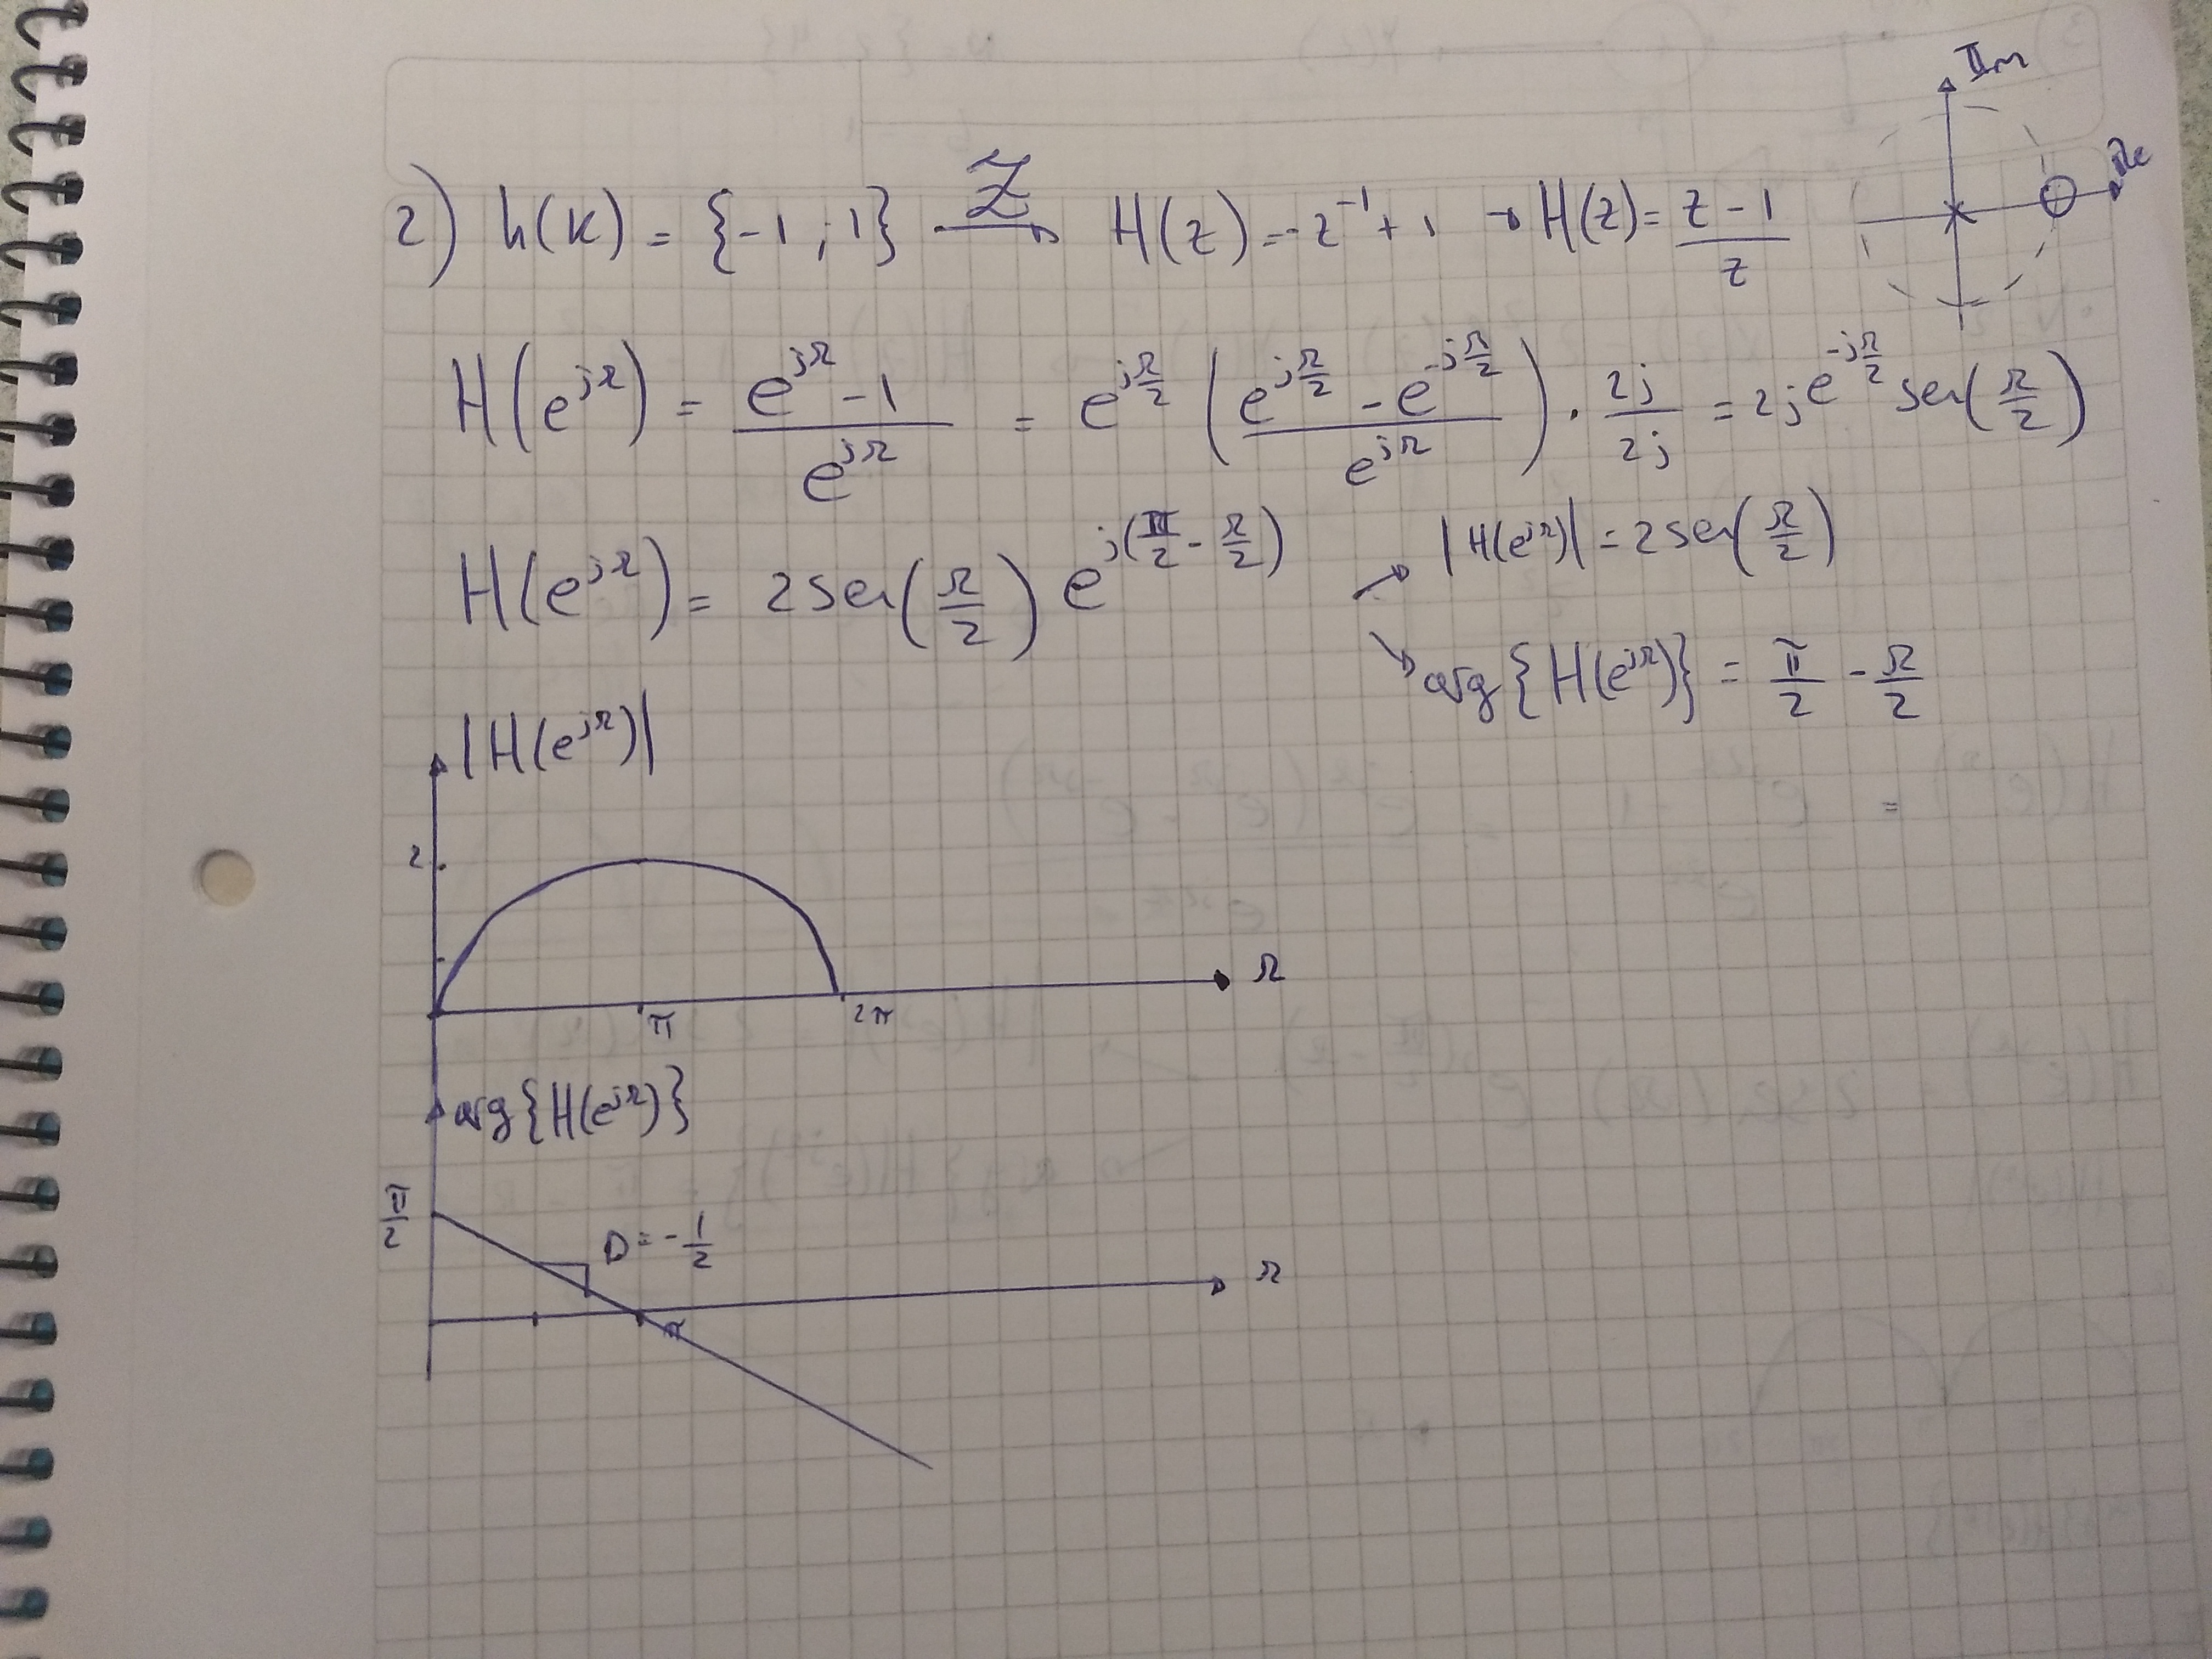 Im
Re
2) h(k) = {-1 ; 1} Z→ H(z) = -z⁻¹ + 1 → H(z) = (z - 1)/z
H(e^{jΩ}) = (e^{jΩ} - 1)/e^{jΩ} = e^{jΩ/2} ((e^{jΩ/2} - e^{-jΩ/2})/e^{jΩ}) · 2j/2j = 2j e^{-jΩ/2} sen(Ω/2)
H(e^{jΩ}) = 2 sen(Ω/2) e^{j(π/2 - Ω/2)}
↗ |H(e^{jΩ})| = 2 sen(Ω/2)
↘ arg{H(e^{jΩ})} = π/2 - Ω/2
|H(e^{jΩ})|
2
Ω
π 2π
arg{H(e^{jΩ})}
π/2
D = -1/2
Ω
π